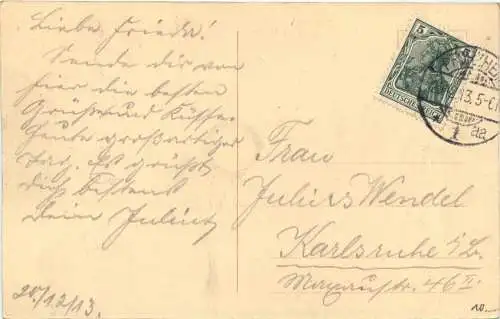 Liebe Frieda!
Sende dir von
hier die besten
Grüße und Küsse.
Heute großartiger
Tag. Es grüßt
dich bestens
dein Julius
20/12/13.
5
DEUTSCHES REICH
13.5-6
Frau
Julius Wendel
Karlsruhe i/B.
46 II
10.-